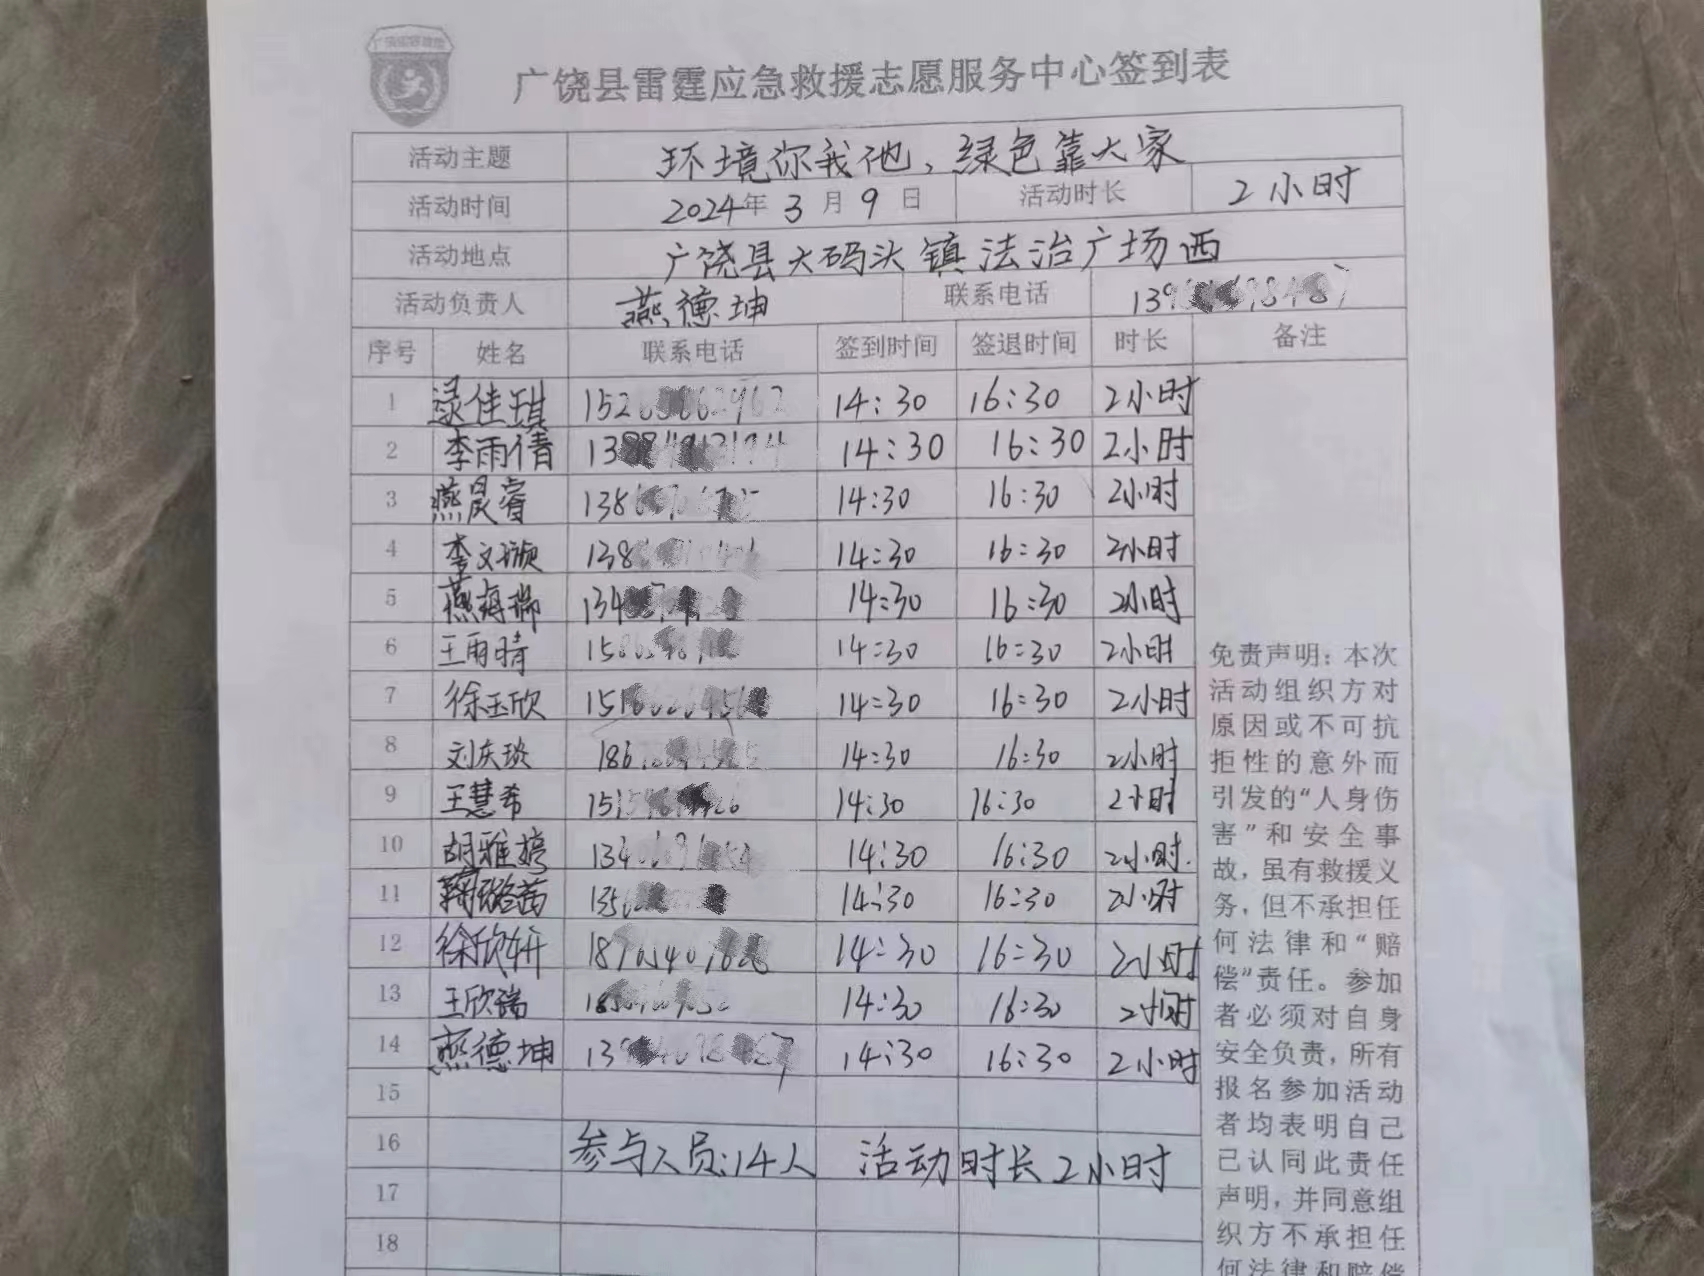 广饶县雷霆应急救援志愿服务中心签到表
活动主题 环境你我他,绿色靠大家
活动时间 2024年 3 月 9 日 活动时长 2小时
活动地点 广饶县大码头镇法治广场西
活动负责人 燕德坤 联系电话
序号 姓名 联系电话 签到时间 签退时间 时长 备注
1 佳琪 14:30 16:30 2小时
2 李雨倩 14:30 16:30 2小时
3 燕晨睿 14:30 16:30 2小时
4 李文 14:30 16:30 2小时
5 燕 瑞 14:30 16:30 2小时
6 王雨晴 14:30 16:30 2小时
7 徐玉欣 14:30 16:30 2小时
8 刘庆琰 14:30 16:30 2小时
9 王慧希 14:30 16:30 2小时
10 胡雅婷 14:30 16:30 2小时
11 14:30 16:30 2小时
12 徐欣妍 14:30 16:30 2小时
13 王欣瑞 14:30 16:30 2小时
14 燕德坤 14:30 16:30 2小时
15
16 参与人员:14人 活动时长2小时
17
18
免责声明:本次
活动组织方对
原因或不可抗
拒性的意外而
引发的“人身伤
害”和安全事
故,虽有救援义
务,但不承担任
何法律和“赔
偿”责任。参加
者必须对自身
安全负责,所有
报名参加活动
者均表明自己
己认同此责任
声明,并同意组
织方不承担任
何法律和赔偿